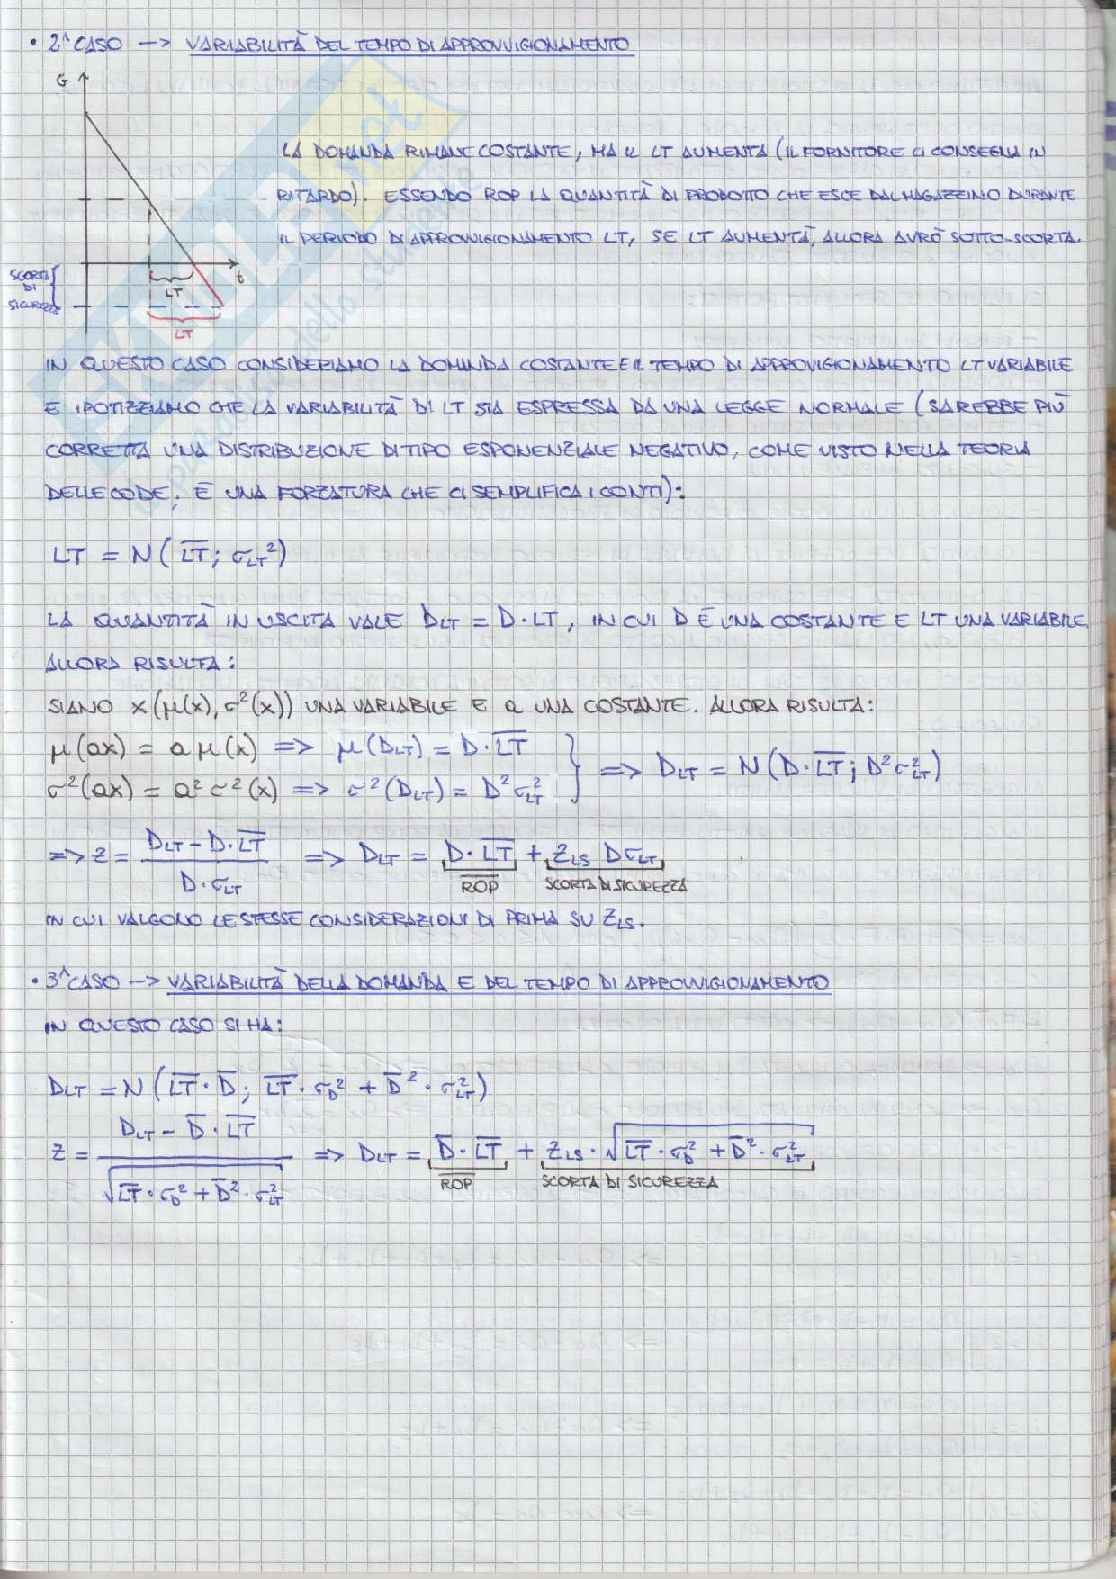 • 2^ CASO –> VARIABILITÀ DEL TEMPO DI APPROVVIGIONAMENTO
G
LA DOMANDA RIMANE COSTANTE, MA IL LT AUMENTA (IL FORNITORE CI CONSEGNA IN
RITARDO). ESSENDO ROP LA QUANTITÀ DI PRODOTTO CHE ESCE DAL MAGAZZINO DURANTE
IL PERIODO DI APPROVVIGIONAMENTO LT, SE LT AUMENTA, ALLORA AVRÒ SOTTO-SCORTA.
t
SCORTA
DI
SICUREZZA
LT
LT
IN QUESTO CASO CONSIDERIAMO LA DOMANDA COSTANTE E IL TEMPO DI APPROVVIGIONAMENTO LT VARIABILE
E IPOTIZZIAMO CHE LA VARIABILITÀ DI LT SIA ESPRESSA DA UNA LEGGE NORMALE (SAREBBE PIÙ
CORRETTA UNA DISTRIBUZIONE DI TIPO ESPONENZIALE NEGATIVO, COME VISTO NELLA TEORIA
DELLE CODE; È UNA FORZATURA CHE CI SEMPLIFICA I CONTI):
LT = N(L̅T̅; σLT²)
LA QUANTITÀ IN USCITA VALE DLT = D·LT, IN CUI D È UNA COSTANTE E LT UNA VARIABILE.
ALLORA RISULTA:
SIANO x(μ(x), σ²(x)) UNA VARIABILE E a UNA COSTANTE. ALLORA RISULTA:
μ(ax) = a μ(x) => μ(DLT) = D·L̅T̅
σ²(ax) = a² σ²(x) => σ²(DLT) = D²σ²LT } => DLT = N(D·L̅T̅; D²σ²LT)
=> z = (DLT – D·L̅T̅) / (D·σLT) => DLT = D·L̅T̅ + ZLS DσLT
ROP SCORTA DI SICUREZZA
IN CUI VALGONO LE STESSE CONSIDERAZIONI DI PRIMA SU ZLS.
• 3^ CASO –> VARIABILITÀ DELLA DOMANDA E DEL TEMPO DI APPROVVIGIONAMENTO
IN QUESTO CASO SI HA:
DLT = N(L̅T̅·D̅; L̅T̅·σD² + D̅²·σ²LT)
Z = (DLT – D̅·L̅T̅) / √(L̅T̅·σD² + D̅²·σ²LT) => DLT = D̅·L̅T̅ + ZLS·√(L̅T̅·σD² + D̅²·σ²LT)
ROP SCORTA DI SICUREZZA